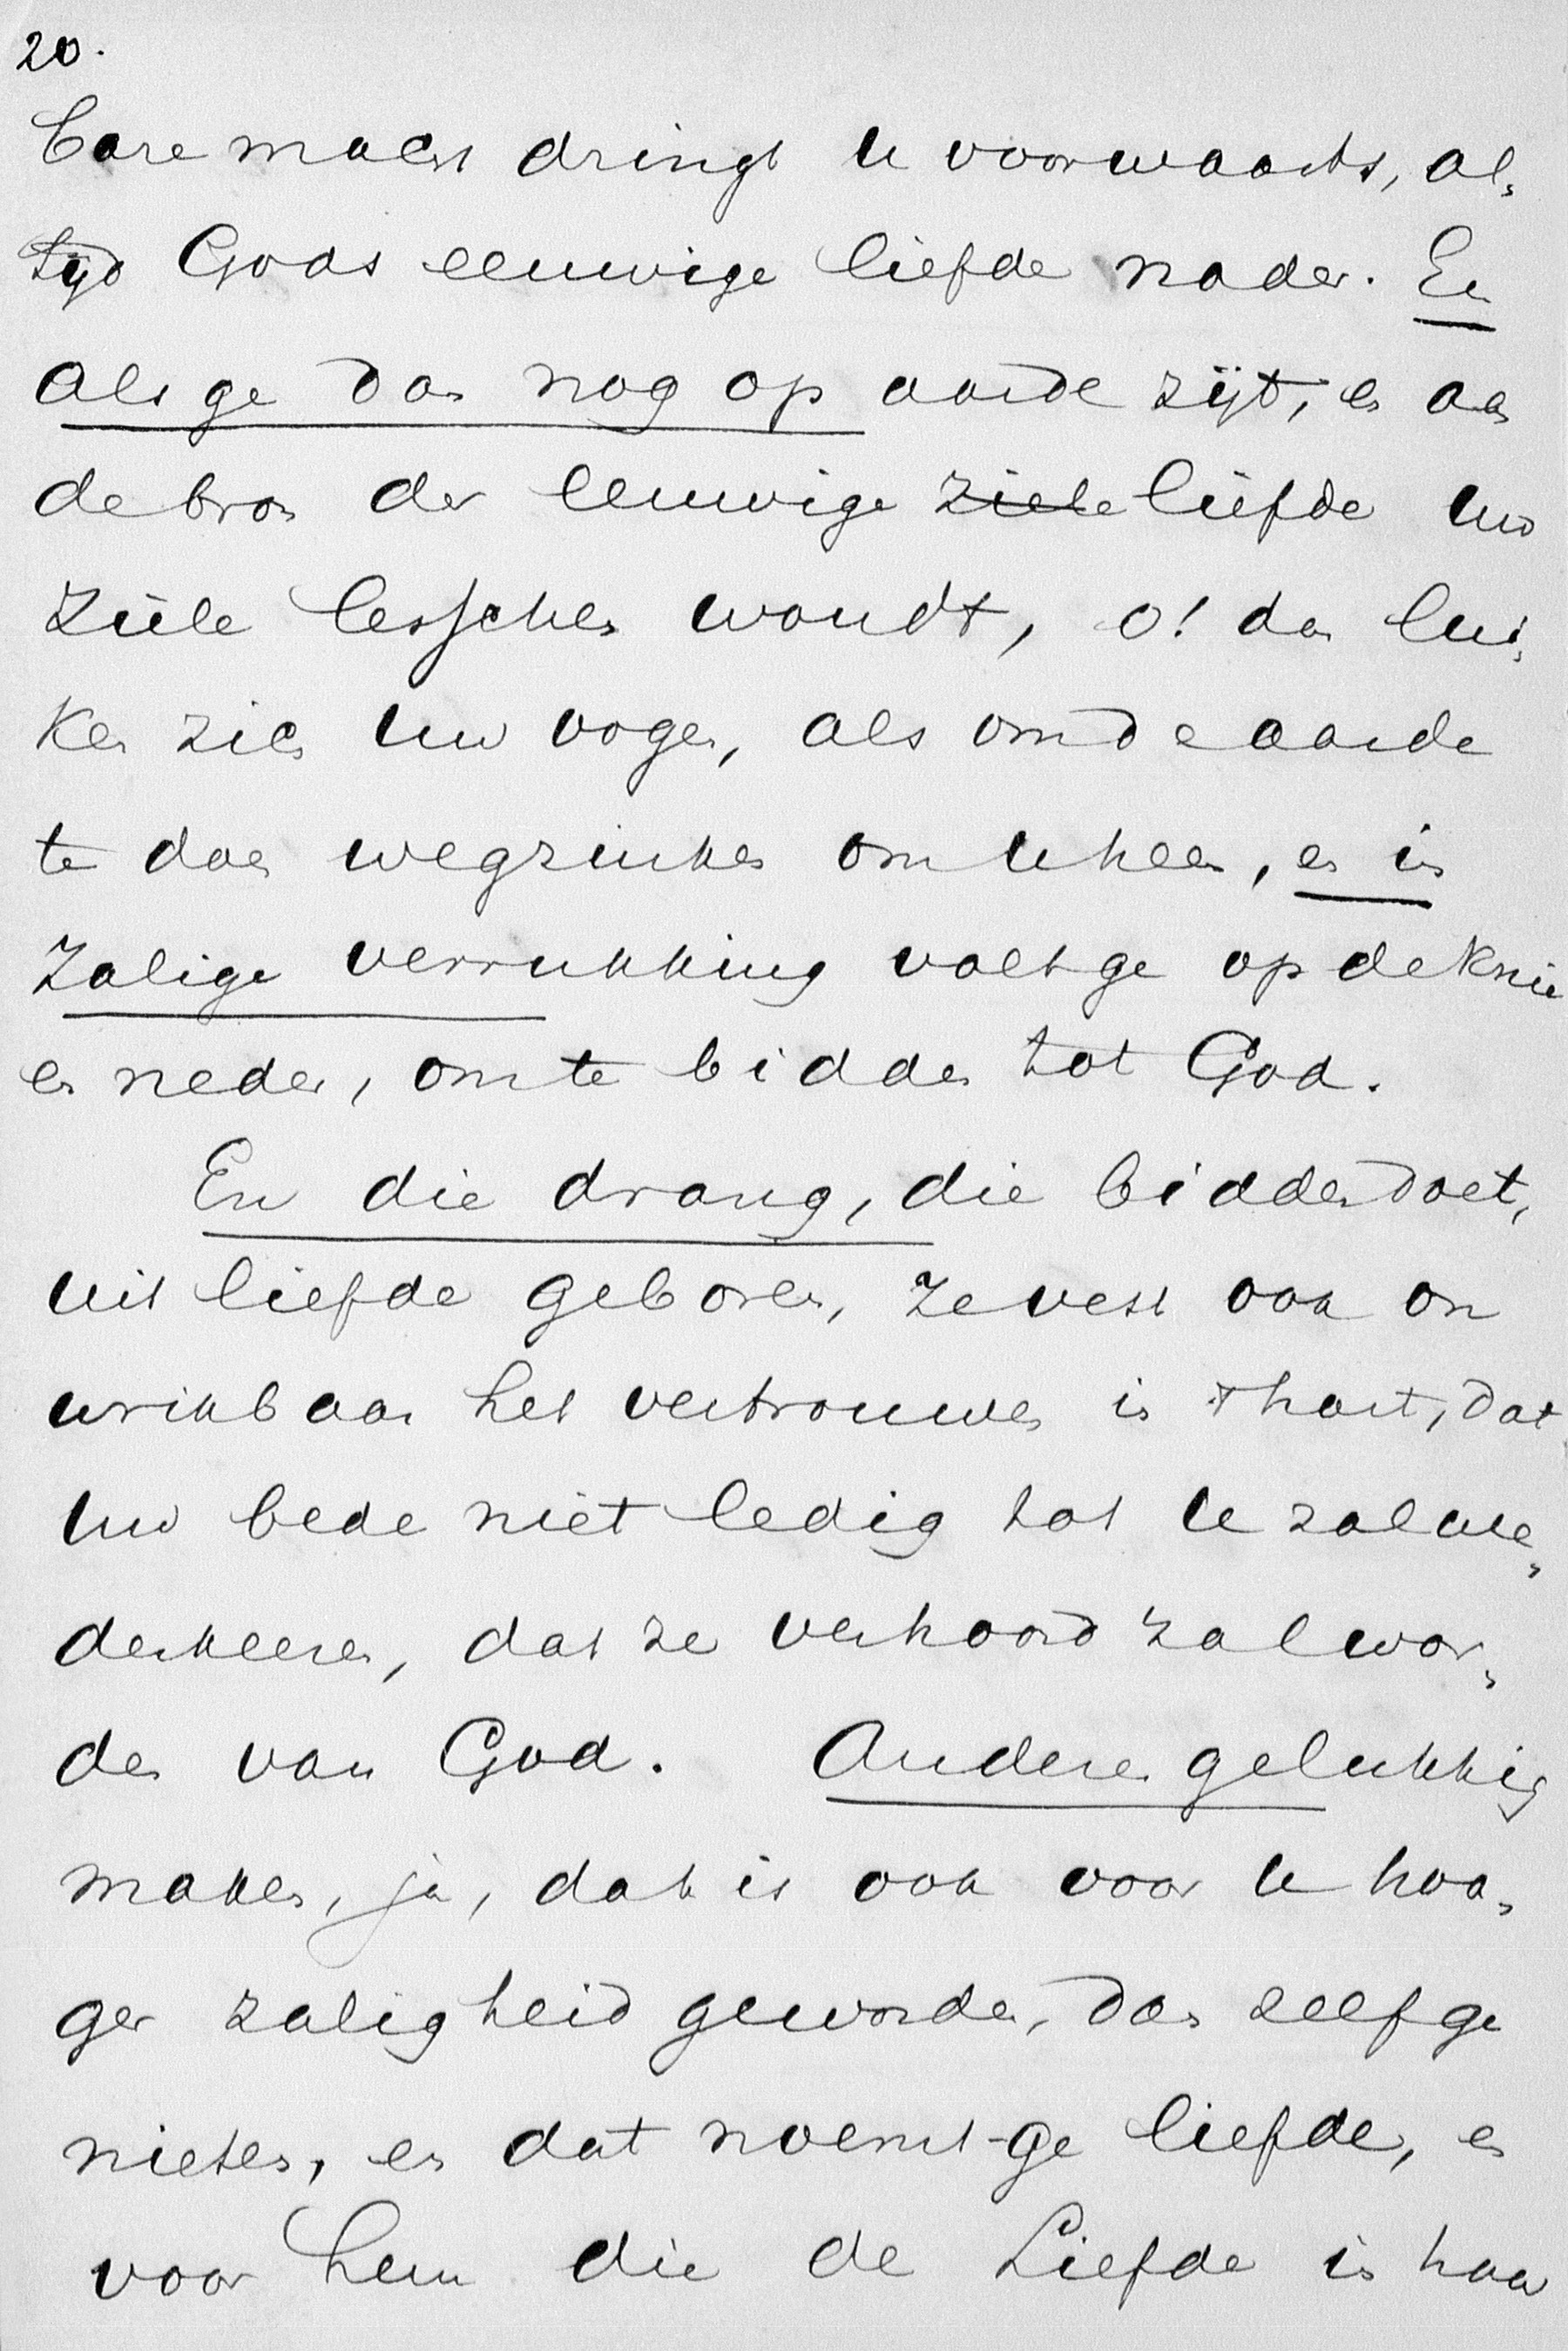 20.
bare macht dringt U voorwaarts, al„
tijd Gods eeuwige liefde nader. En
als ge dan nog op aarde zijt, en aan
de bron der eeuwige ziele liefde Uw
ziele lesschen woudt, o! dan lui„
ken zich Uw oogen, als om de aarde
te doen wegzinken om U heen, en in
zalige verrukking valt ge op de knie
en neder, om te bidden tot God.
En die drang, die bidden doet,
uit liefde geboren, ze vest ook on
wrikbaar het vertrouwen in 't hart, dat
Uw bede niet ledig tot U zal we„
derkeeren, dat ze verhoord zal wor„
den van God. Anderen gelukkig
maken, ja, dat is ook voor U hoo„
ger zaligheid geworden, dan zelf ge
nieten, en dat noemt-ge liefde, en
voor Hem die de Liefde is haar